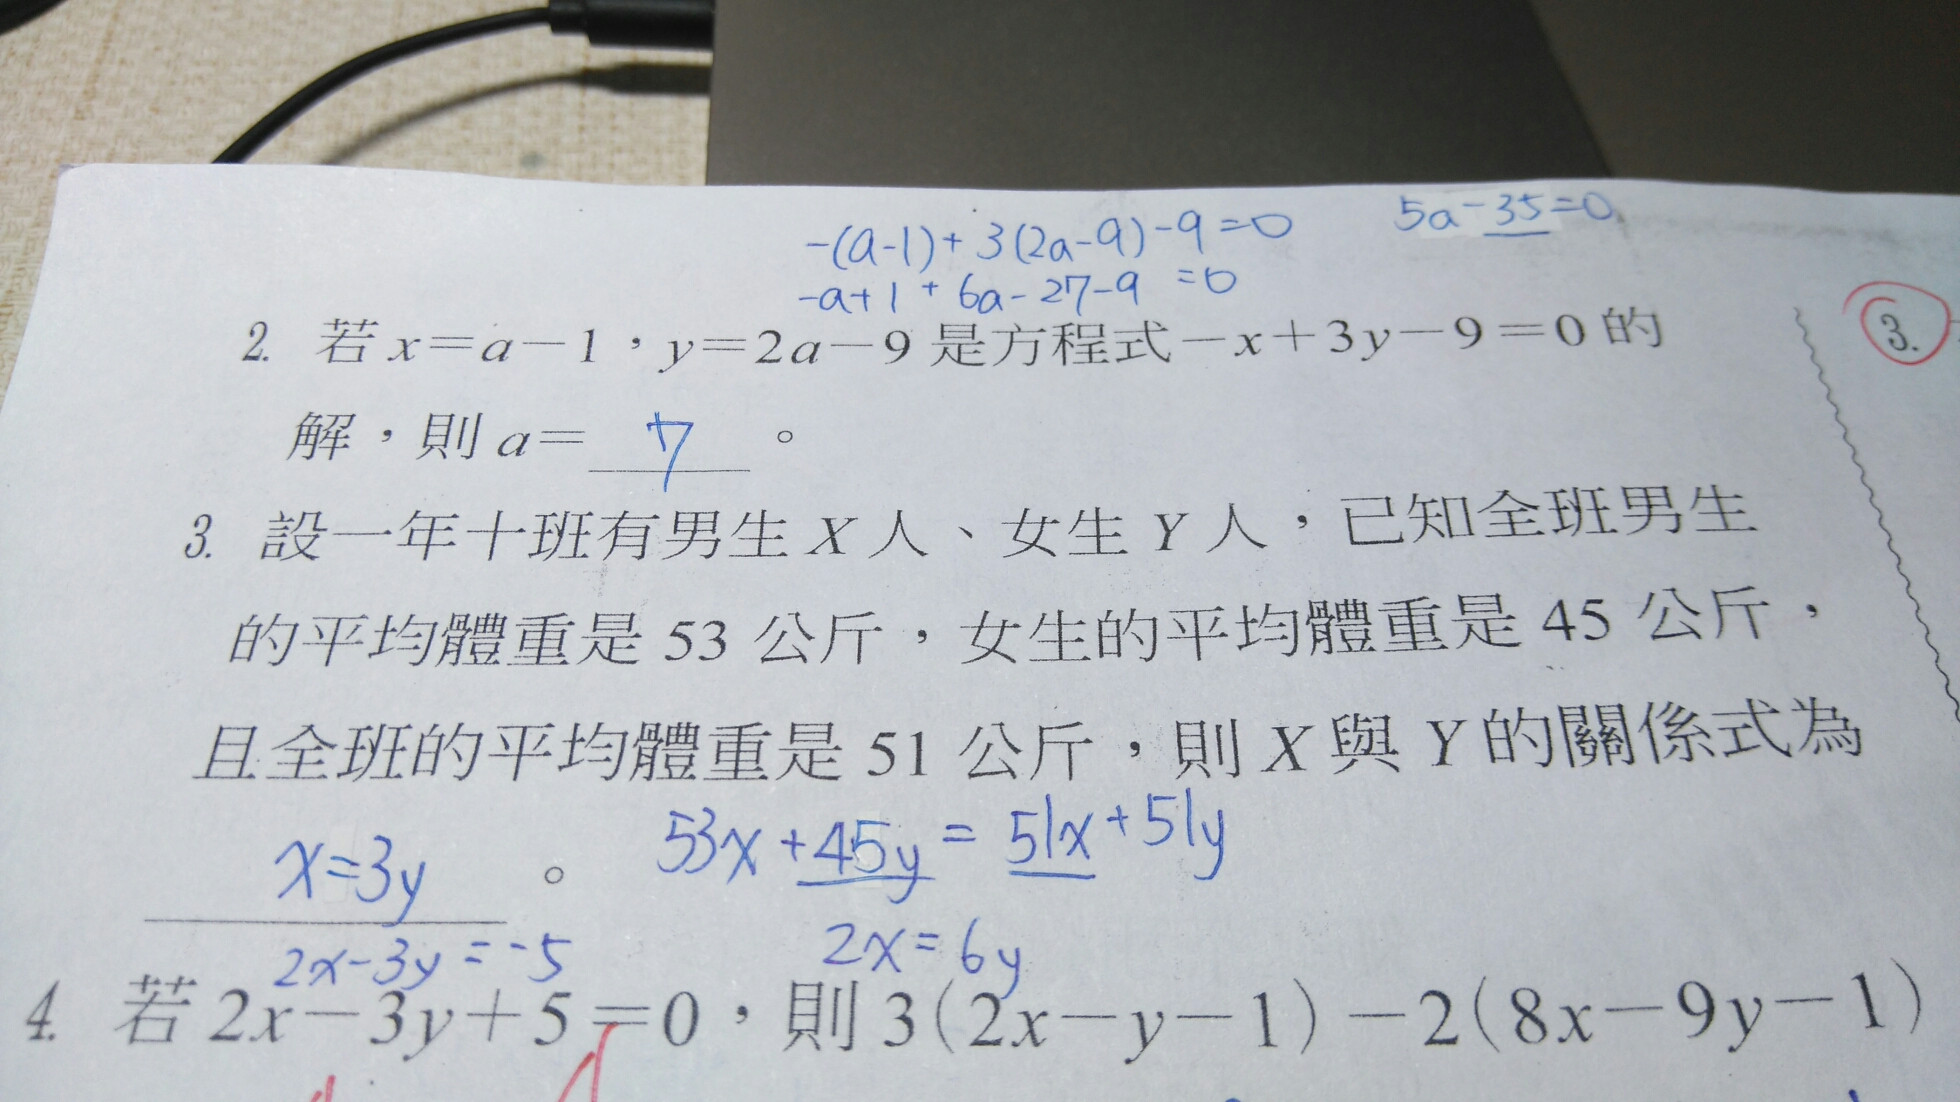 -(a-1)+3(2a-9)-9=0 5a-35=0
-a+1+6a-27-9=0
2. 若x=a-1，y=2a-9是方程式-x+3y-9=0的
解，則a= 7 。
3. 設一年十班有男生X人、女生Y人，已知全班男生
的平均體重是53公斤，女生的平均體重是45公斤，
且全班的平均體重是51公斤，則X與Y的關係式為
x=3y 。 53x+45y=51x+51y
2x-3y=-5 2x=6y
4. 若2x-3y+5=0，則3(2x-y-1)-2(8x-9y-1)
3.